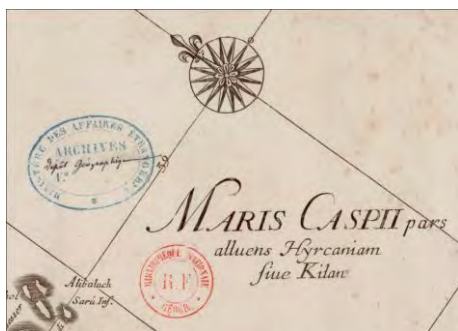 MINISTÈRE DES AFFAIRES ETRANGERES
ARCHIVES
Dépôt Géographique
MARIS CASPII pars
alluens Hyrcaniam
siue Kilan
BIBLIOTHEQUE NATIONALE
R.F
GÉOGR.
Alibalach
Saru Inf.